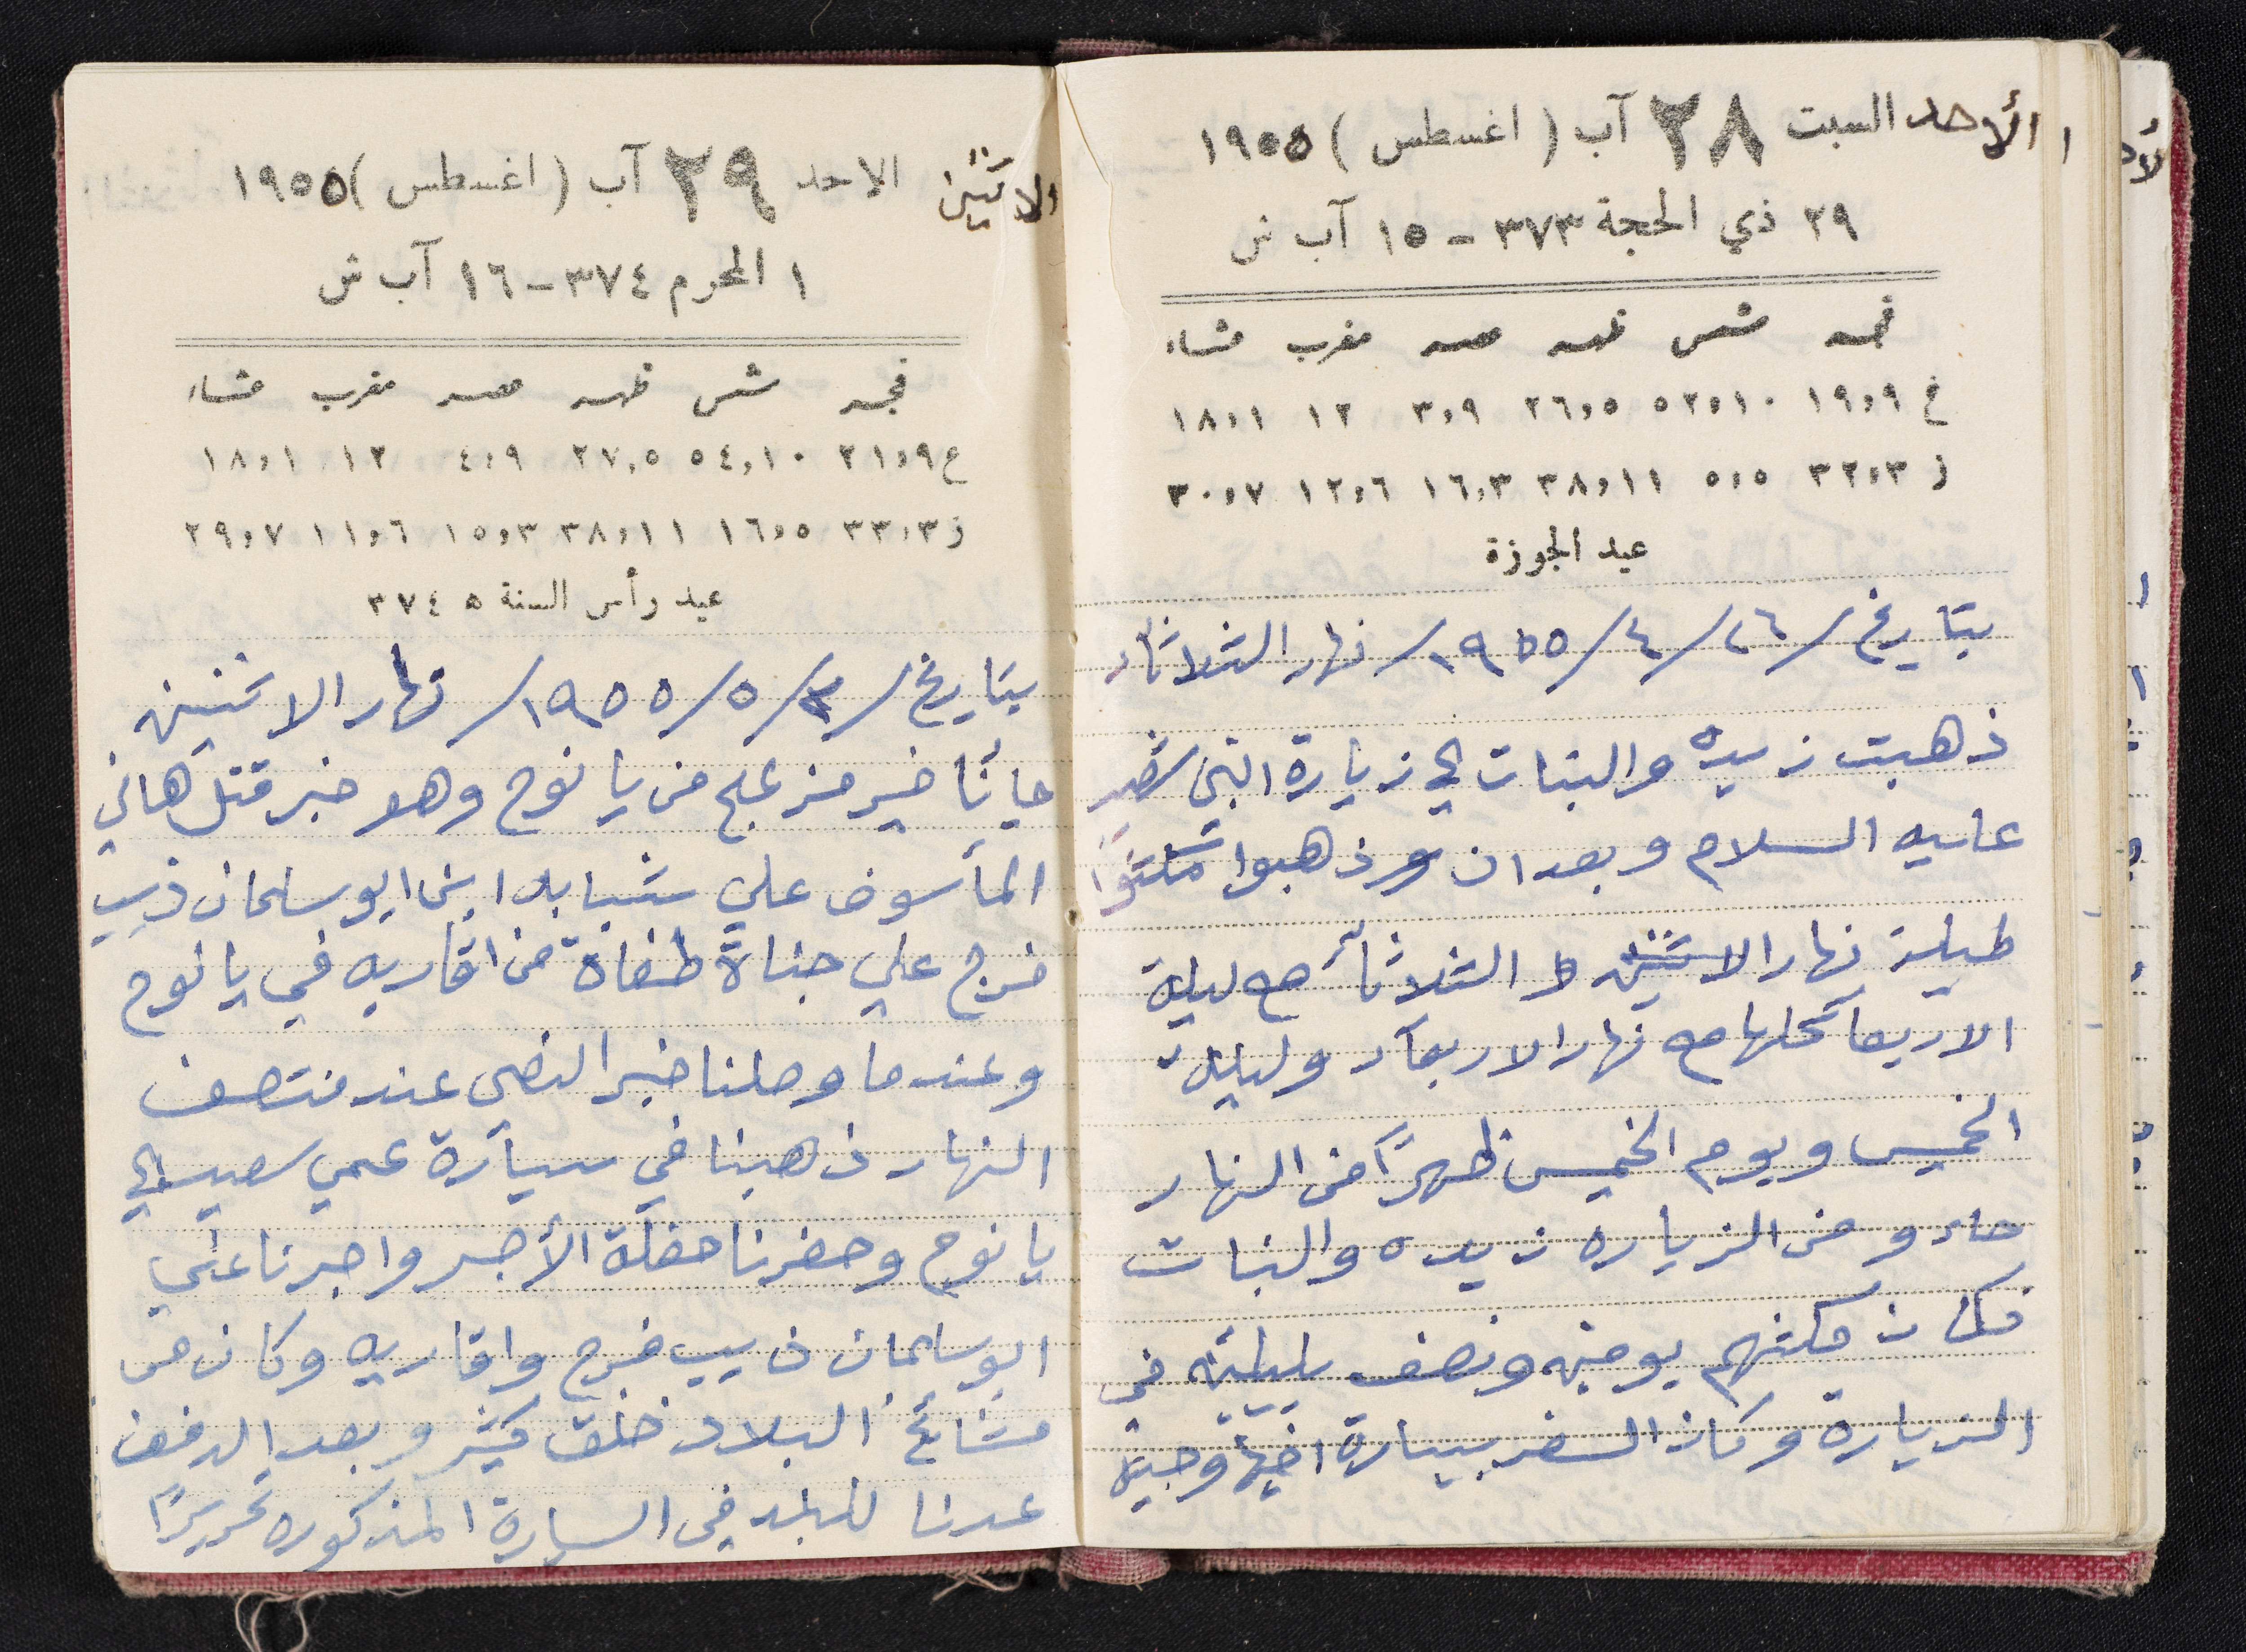 الأحد السبت ٢٨ آب ( اغسطس ) ١٩٥٥
٢٩ ذي الحجة ٣٧٣ - ١٥ آب ش
فجر شمس ظهر عصر مغرب عشاء
غ ١٩،٩ ٥٢،١٠ ٢٦،٥ ٣،٩ ١٢ ١٨،١
ز ٣٢،٣ ٥،٥ ٣٨،١١ ١٦،٣ ١٢،٦ ٣٠،٧
عيد الجوزة
بتاريخ /٢٦/٤/١٩٥٥/ نهار الثلاثاء
ذهبت زيده والبنات الى زيارة النبي
عليه السلام وبعد ان ذهبوا مكثوا
طيلة نهار الاثنين و الثلاثاء مع ليلة
الاربعا كلها مع نهار الاربعاء وليلة
الخميس ويوم الخميس ظهرًا من النهار
جاءو من الزياره زيده والبنات
فكان مكثهم يومين ونصف بليلتين في
الزيارة وكان السفر بسيارة اخيها وجيه
الاثنين الاحد ٢٩ آب ( اغسطس ) ١٩٥٥
١ المحرم ٣٧٤ - ١٦ آب ش
فجر شمس ظهر عصر مغرب عشاء
ع ٢١،٩ ٥٤،١٠ ٢٧،٥ ٤،٩ ١٢ ١٨،١
ز ٣٣،٣ ١٦،٥ ٣٨،١١ ١٥،٣ ١١،٦ ٢٩،٧
عيد رأس السنة ٣٧٤٥
بتاريخ /٢/٥/١٩٥٥/ نهار الاثنين
جائنا خبر مزعج من يانوح وهو خبر قتل هاني
المأسوف على شبابه ابن ابو سلمان ذيب
فرج على جناة طغاة من اقاربه في يانوح
وعندما وصلنا خبر النعى عند منتصف
النهار ذهبنا في سيارة عمي سعيد الى
يانوح وحضرنا حفلة الأجر واجرنا على
ابو سلمان ذيب فرج واقاربه وكان من
مشائخ البلاد خلق كثير وبعد الدفن
عدنا للبلد في السيارة المذكوره تحريرًا